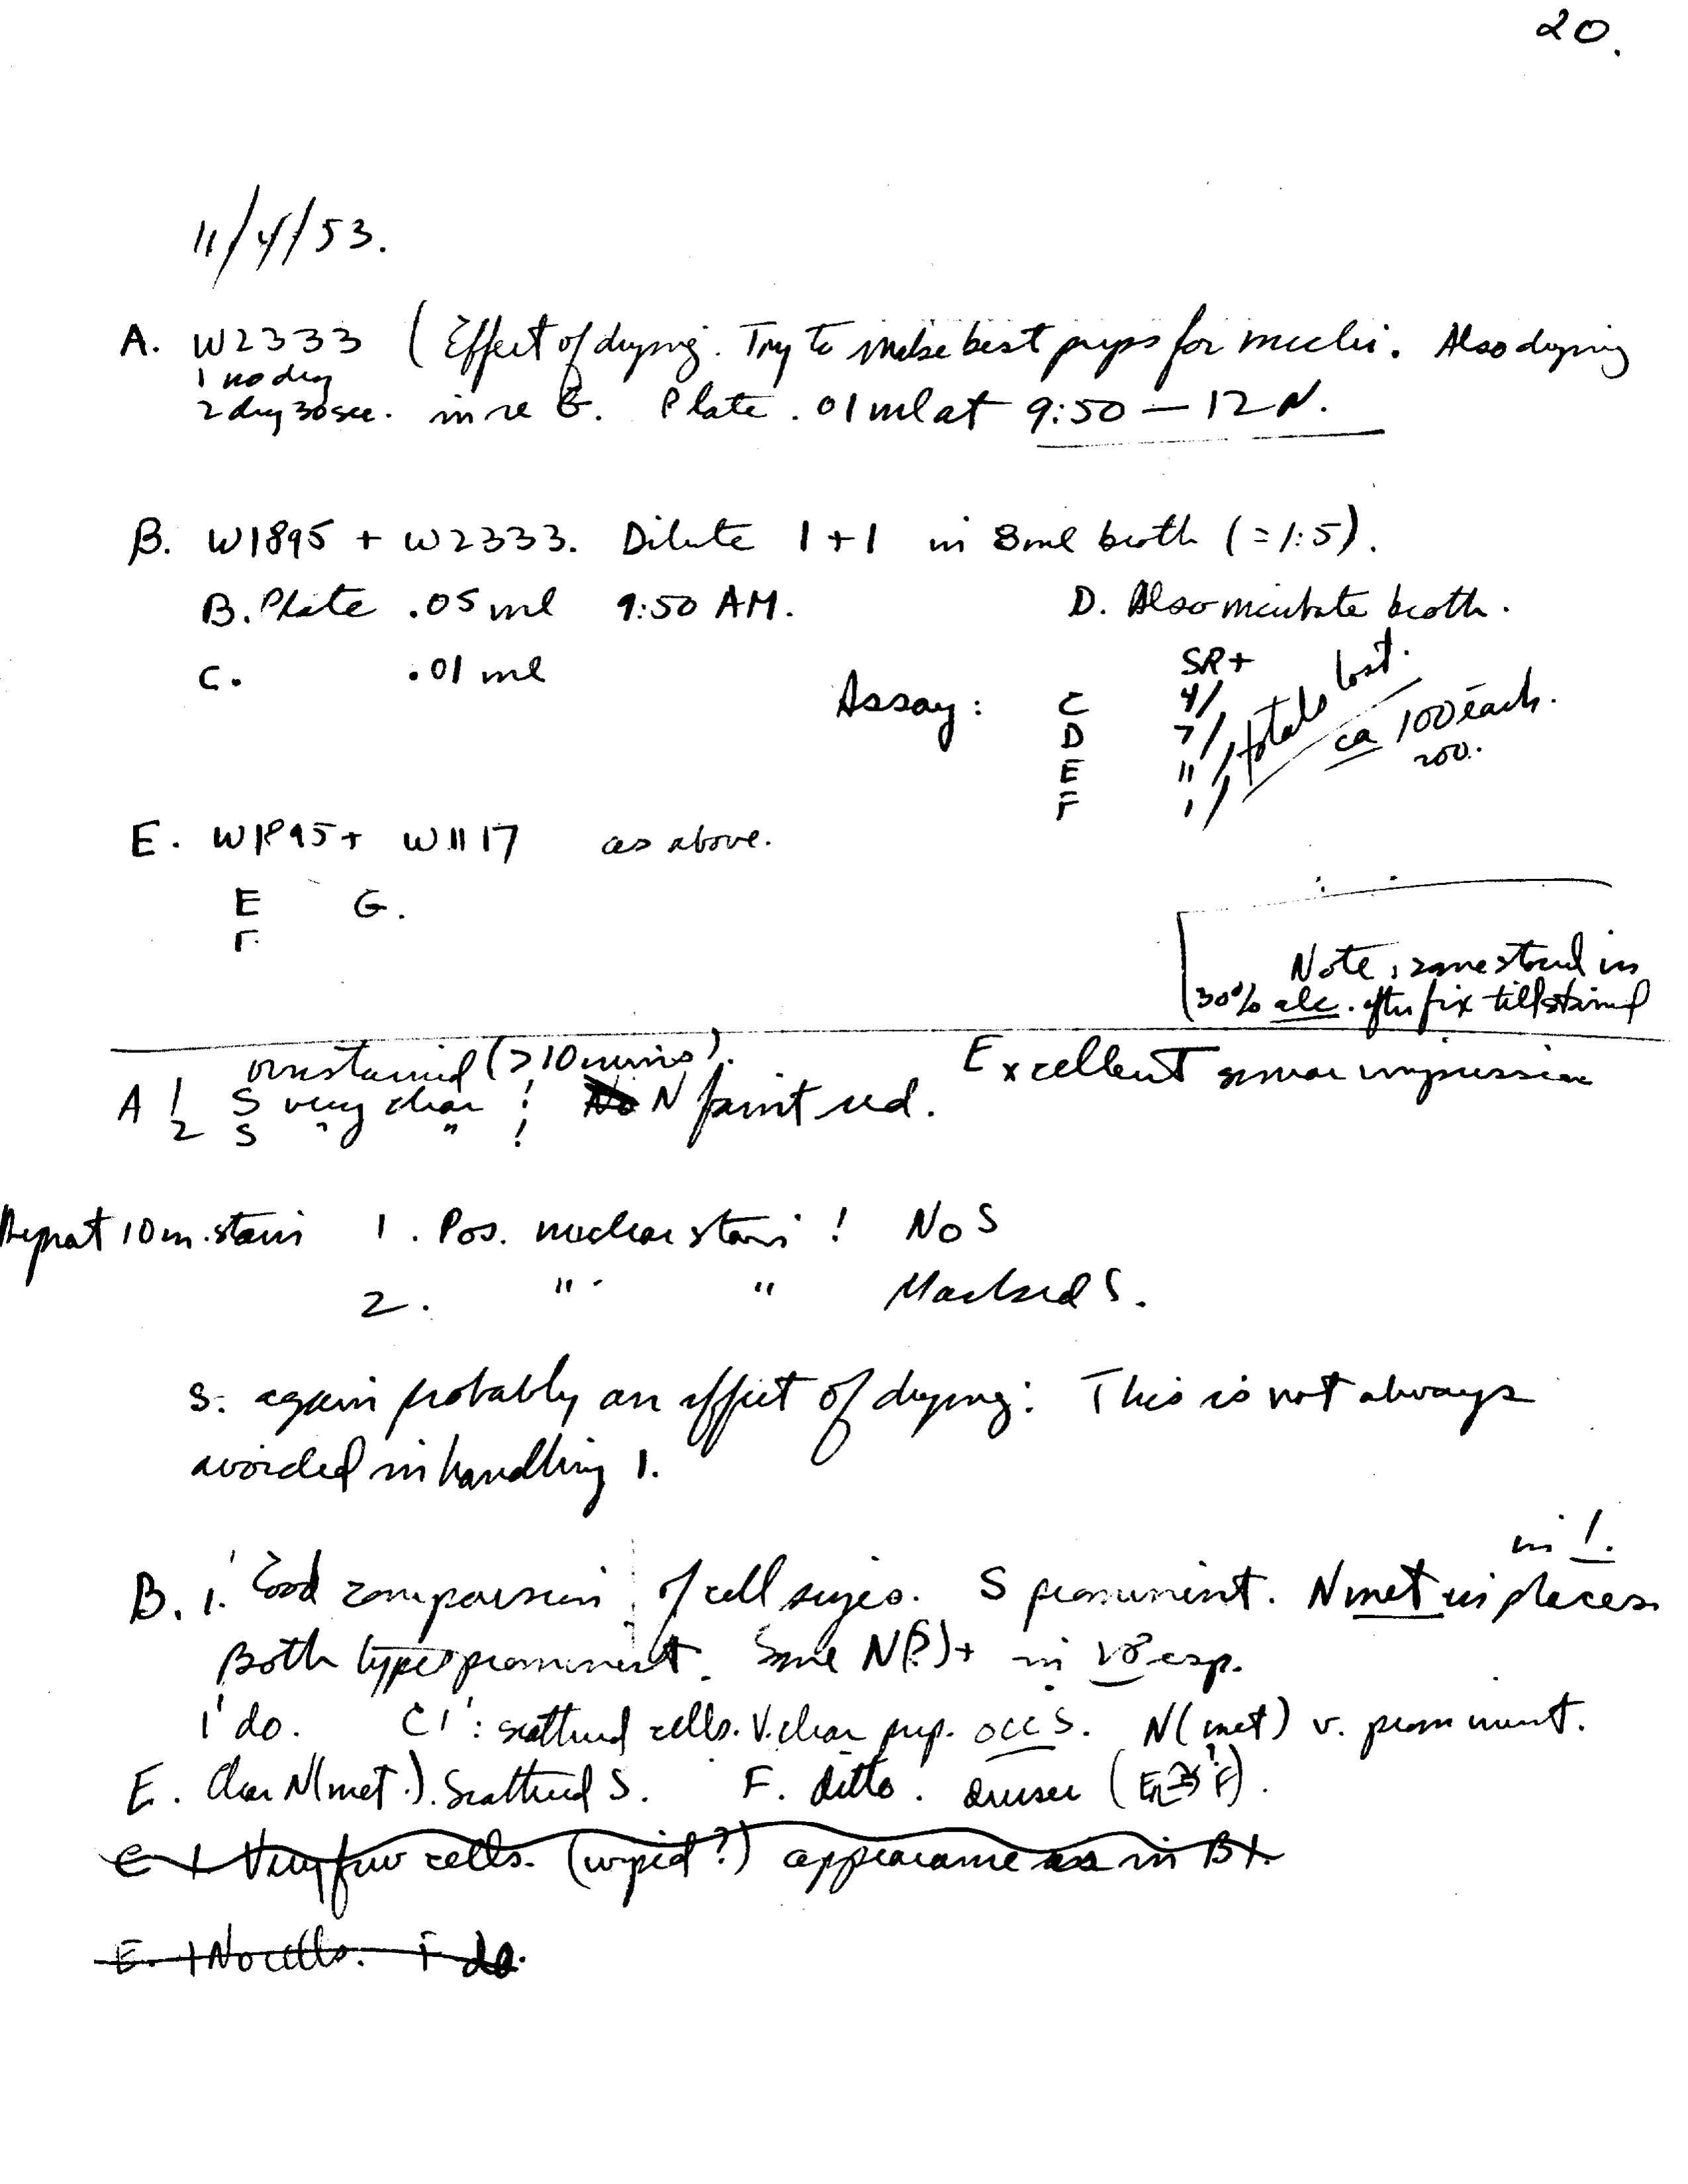 20.
11/4/53.
A. W2333 (Effect of drying. Try to make best preps for nuclei. Also drying
1 no dry
2 dry 30 sec. in re B. Plate .01 ml at 9:50 — 12 N.
B. W1895 + W2333. Dilute 1+1 in 8 ml broth (=1:5).
B. Plate .05 ml 9:50 AM. D. Also incubate broth.
C. .01 ml
SR+
Assay: C 4/
D 7/
E 11/
F 1/
totals lost.
ca 100 each.
200.
E. W1895+ W1117 as above.
E G.
F
Note: some stored in
30% alc. after fix till stained
overstained (>10 mins). Excellent smear impression
A 1 S very clear ! N faint red.
2 S " " !
Repeat 10 m. stain 1. Pos. nuclear stain ! No S
2. " " Marked S.
S. again probably an effect of drying: This is not always
avoided in handling 1.
in 1.
B. 1. Good comparison of cell sizes. S prominent. N met in places.
Both types prominent. Some N(?)+ in esp.
1' do. C1': scattered cells. V. clear prep. occ S. N(met) v. prominent.
E. Clear N(met.). Scattered S. F. ditto. denser (E F).
C 1 Very few cells. (wiped?) appearance as in B1.
E. 1 No cells. F do.